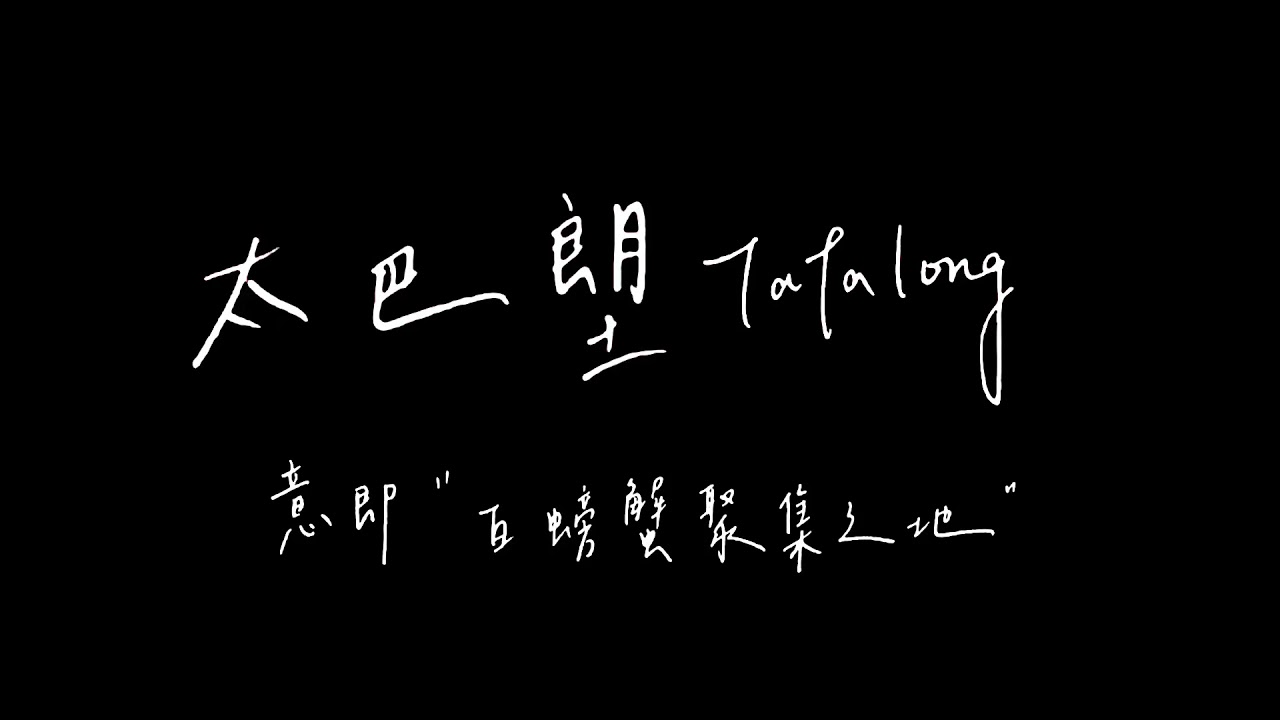 太巴塱 Tafalong
意即"百螃蟹聚集之地"